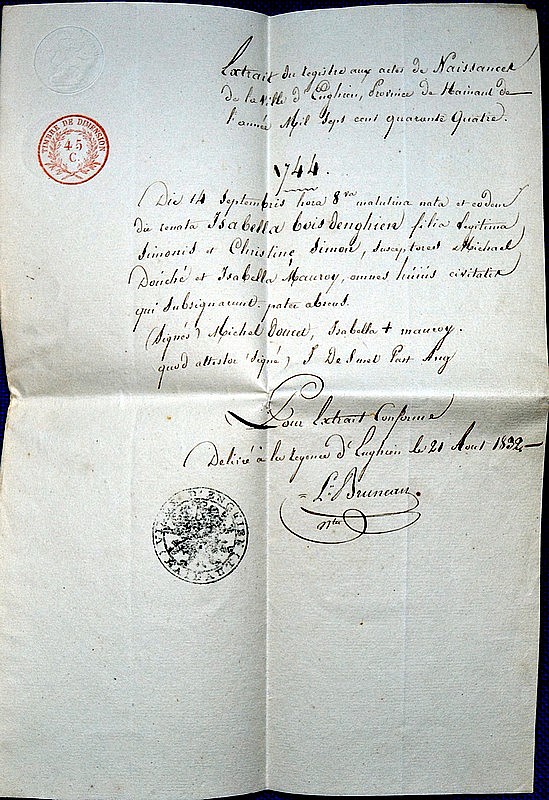 TIMBRE DE DIMENSION
45
C.
Extrait du registre aux actes de Naissances
de la Ville d'Enghien, Province de Hainaut de
l'année Mil Sept cent quarante Quatre.
1744.
Die 14 Septembris hora 8va matutina nata et eodem
die renata Isabella boisdenghien filia legitima
Simonis et Christine Simon, Susceptores Michael
Douché et Isabella Mauroy, omnes huius civitatis
qui Subsignarunt. pater absens.
(Signés) Michel doucet, Isabella + mauroy.
quod attestor (Signé) J De Smet Past Ang
Pour Extrait Conforme
Delivré à la regence d'Enghien le 21 Aout 1832
L. Bruneau.
VILLE D'ENGHIEN
HAINAUT